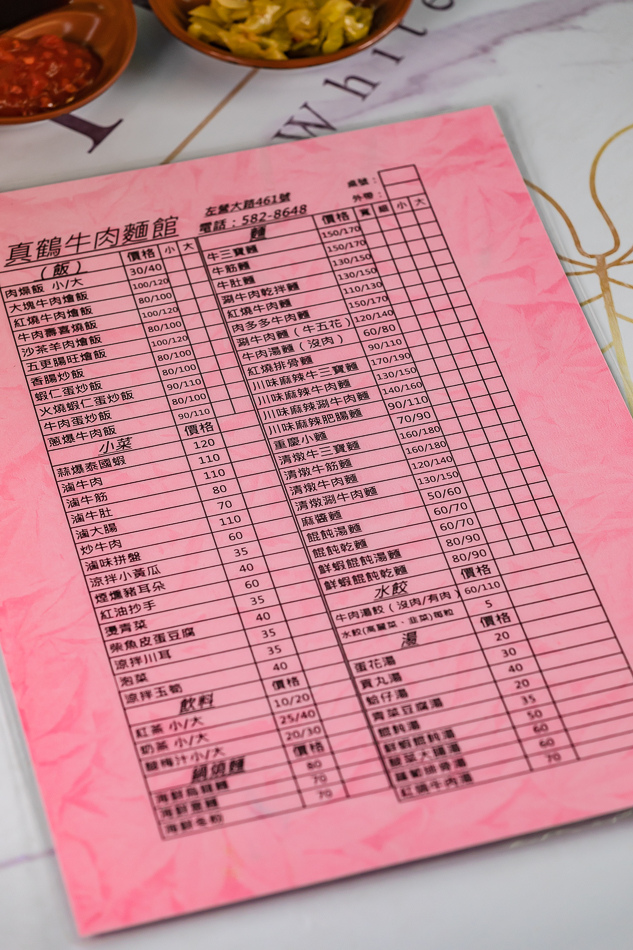 White
真鶴牛肉麵館
左營大路461號
電話：582-8648
桌號：
外帶：
（飯） 價格 小 大
肉燥飯 小/大 30/40
大塊牛肉燴飯 100/120
紅燒牛肉燴飯 80/100
牛肉壽喜燒飯 100/120
沙茶羊肉燴飯 80/100
五更腸旺燴飯 100/120
香腸炒飯 80/100
蝦仁蛋炒飯 80/100
火燒蝦仁蛋炒飯 90/110
牛肉蛋炒飯 80/100
蔥爆牛肉飯 90/110
小菜 價格
蒜爆泰國蝦 120
滷牛肉 110
滷牛筋 110
滷牛肚 80
滷大腸 70
炒牛肉 110
滷味拼盤 60
涼拌小黃瓜 35
煙燻豬耳朵 40
紅油抄手 60
燙青菜 35
柴魚皮蛋豆腐 40
涼拌川耳 35
泡菜 35
涼拌玉筍 40
飲料 價格
紅茶 小/大 10/20
奶茶 小/大 25/40
酸梅汁小/大 20/30
鍋燒麵 價格
海鮮烏龍麵 80
海鮮意麵 70
海鮮冬粉 70
麵 價格 寬 細 小 大
牛三寶麵 150/170
牛筋麵 150/170
牛肚麵 130/150
涮牛肉乾拌麵 130/150
紅燒牛肉麵 110/130
肉多多牛肉麵 150/170
涮牛肉麵（牛五花） 120/140
牛肉湯麵（沒肉） 60/80
紅燒排骨麵 90/110
川味麻辣牛三寶麵 170/190
川味麻辣牛肉麵 130/150
川味麻辣涮牛肉麵 140/160
川味麻辣肥腸麵 90/110
重慶小麵 70/90
清燉牛三寶麵 160/180
清燉牛筋麵 160/180
清燉牛肉麵 120/140
清燉涮牛肉麵 130/150
麻醬麵 50/60
餛飩湯麵 60/70
餛飩乾麵 60/70
鮮蝦餛飩湯麵 80/90
鮮蝦餛飩乾麵 80/90
水餃 價格
牛肉湯餃（沒肉/有肉） 60/110
水餃(高麗菜、韭菜)每粒 5
湯 價格
蛋花湯 20
貢丸湯 30
蛤仔湯 40
青菜豆腐湯 20
餛飩湯 35
鮮蝦餛飩湯 50
酸菜大腸湯 60
蘿蔔排骨湯 60
紅燒牛肉湯 70